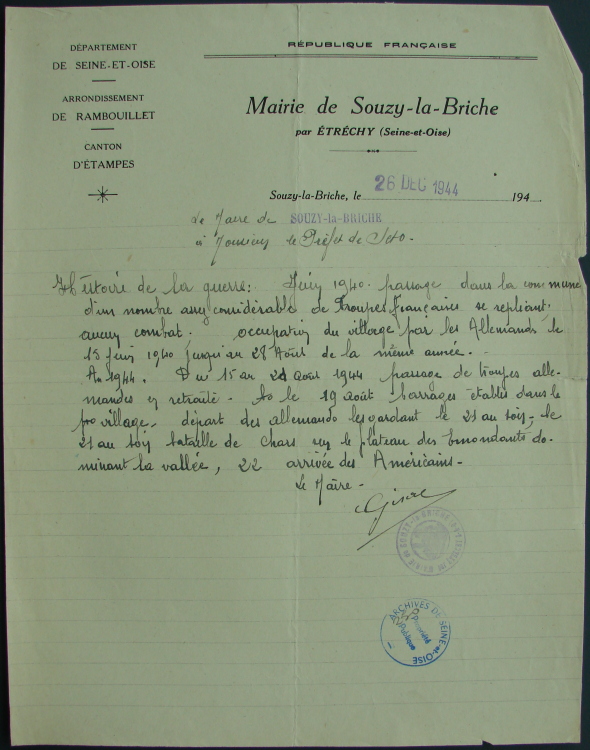 DÉPARTEMENT
DE SEINE-ET-OISE
ARRONDISSEMENT
DE RAMBOUILLET
CANTON
D'ÉTAMPES
RÉPUBLIQUE FRANÇAISE
Mairie de Souzy-la-Briche
par ÉTRÉCHY (Seine-et-Oise)
Souzy-la-Briche, le 26 DEC 1944 194
Le Maire de SOUZY-la-BRICHE
à Monsieur le Préfet de S et O.
Histoire de la guerre: Juin 1940. passage dans la commune
d'un nombre assez considérable de Troupes Françaises se repliant.
aucun combat. occupation du village par les Allemands le
15 juin 1940 jusqu'au 28 Août de la même année.
An 1944. Du 15 au 21 août 1944 passage de troupes alle-
mandes en retraite. le 19 août barrages établis dans le
village. départ des allemands les gardant le 21 au soir. le
21 au soir bataille de chars sur le plateau des do-
minant la vallée, 22 arrivée des Américains.
Le Maire.
ARCHIVES DE SEINE-et-OISE
Propriété
Publique